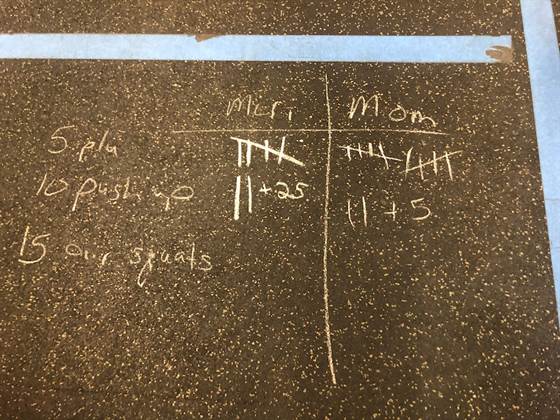 Mom
5 plu
10 push up || +25
|| + 5
15 air squats